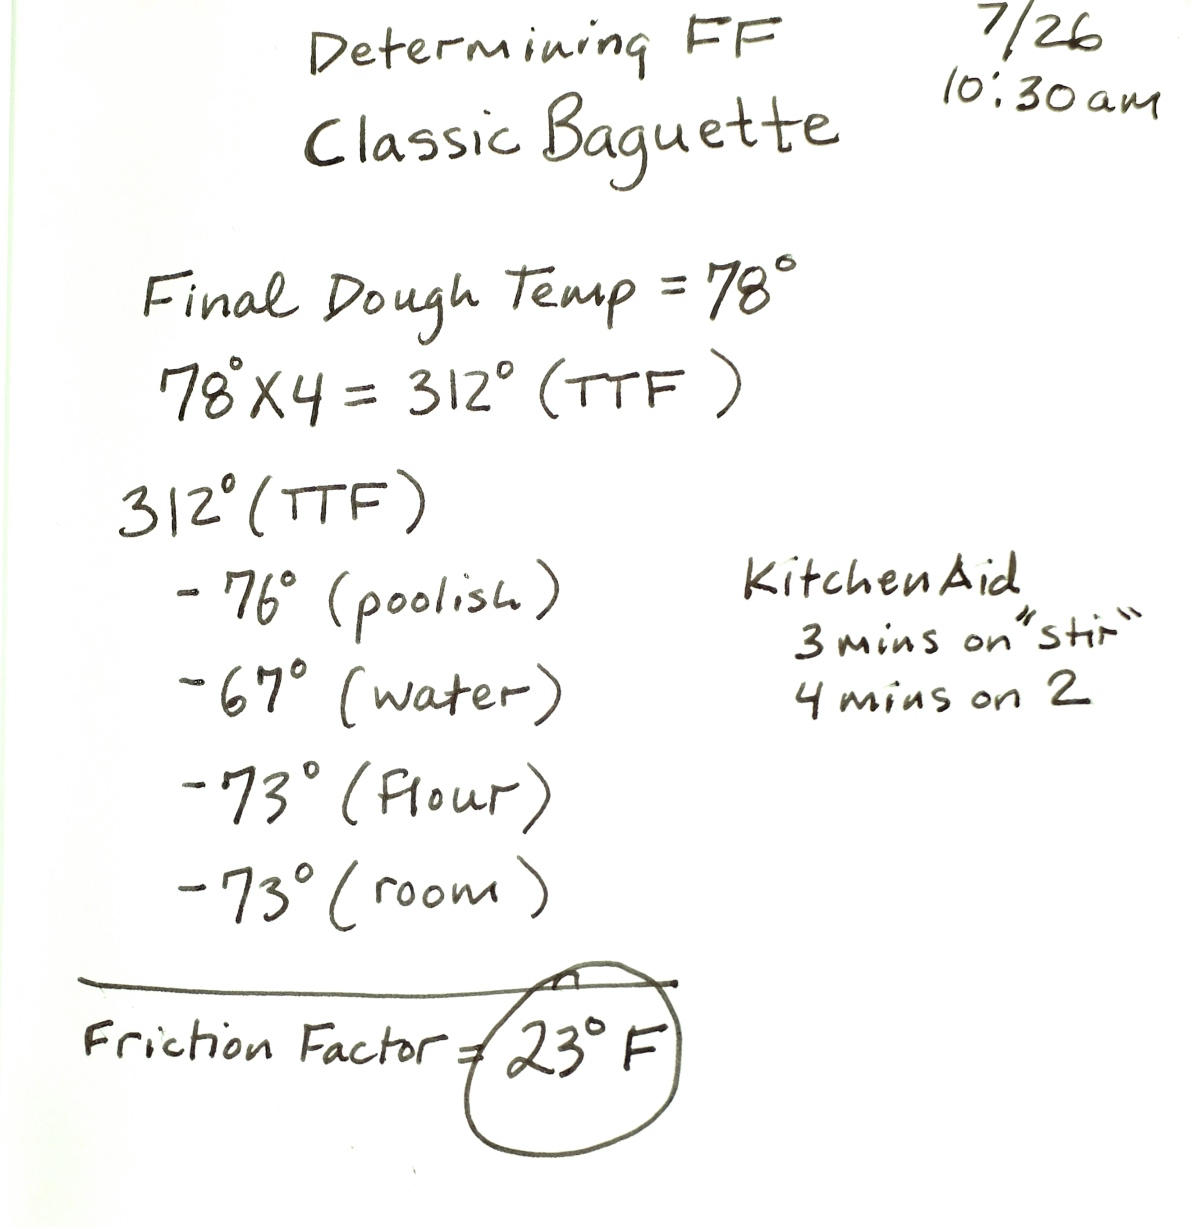 Determining FF
Classic Baguette
7/26
10:30am
Final Dough Temp = 78°
78° X 4 = 312° (TTF)
312° (TTF)
- 76° (poolish)
- 67° (water)
- 73° (Flour)
- 73° (room)
KitchenAid
3 mins on "stir"
4 mins on 2
Friction Factor = 23° F